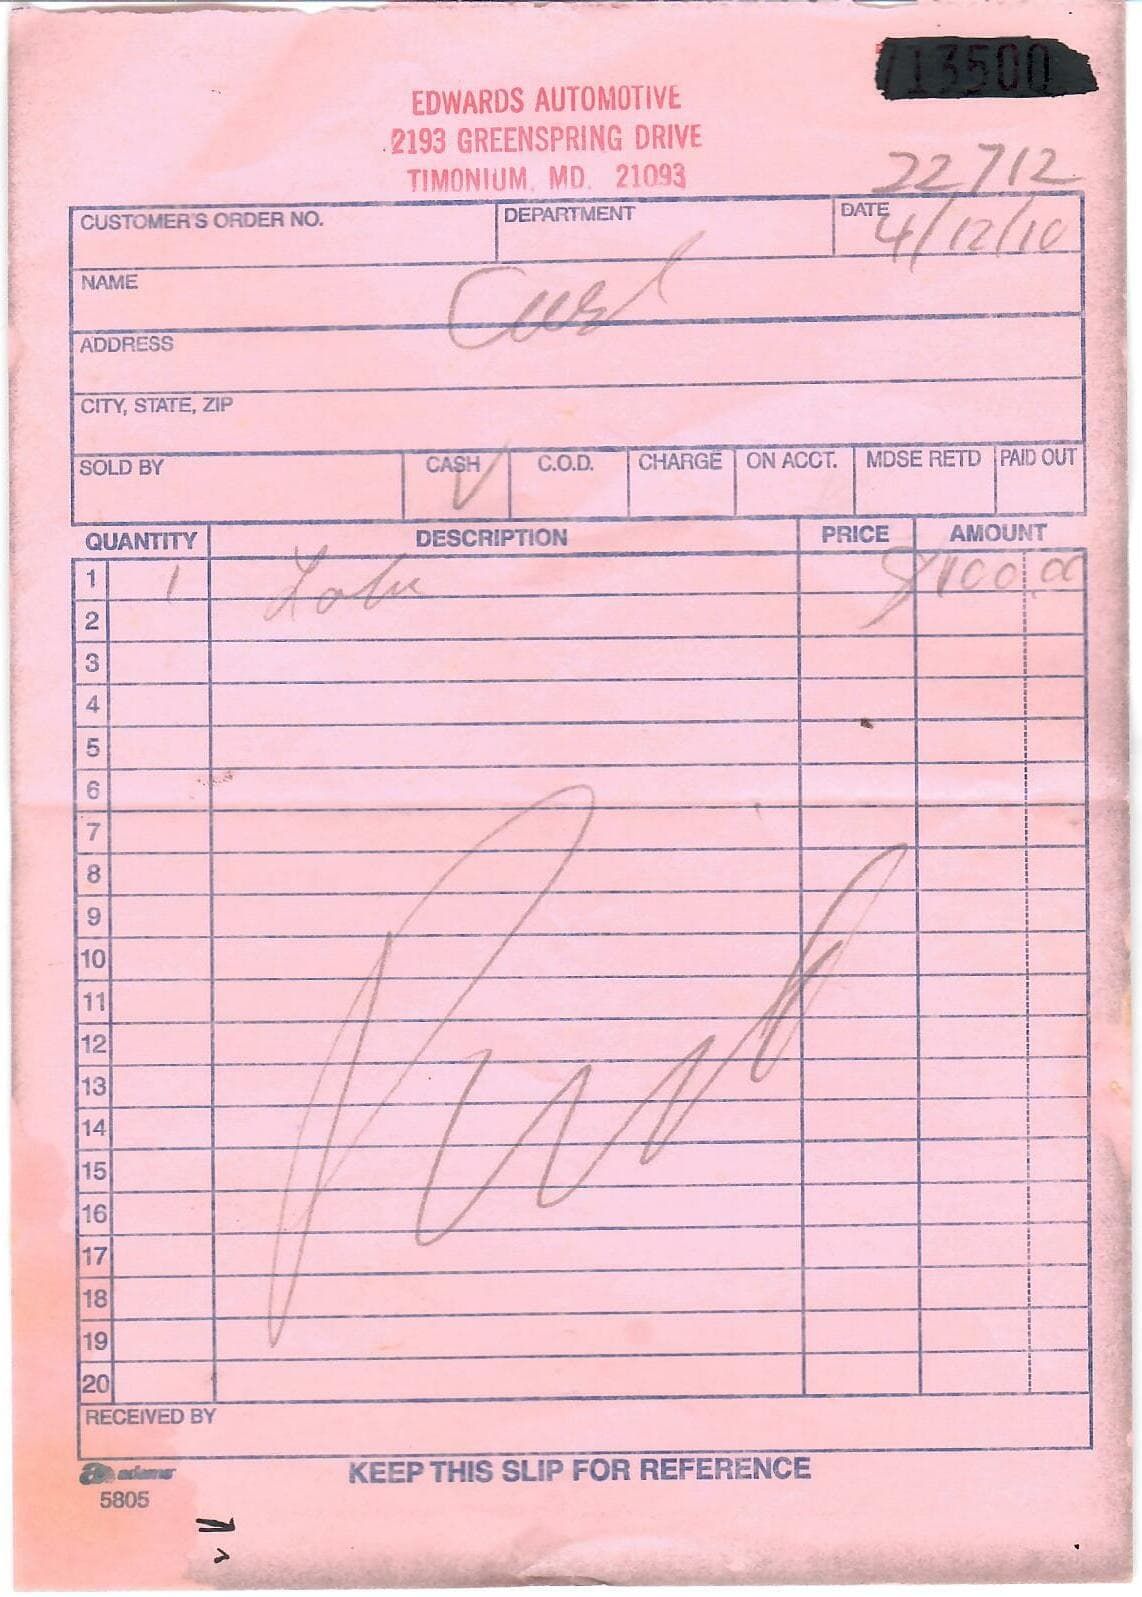 713500
EDWARDS AUTOMOTIVE
2193 GREENSPRING DRIVE
TIMONIUM, MD. 21093
22712
CUSTOMER'S ORDER NO. DEPARTMENT DATE 4/12/10
NAME
ADDRESS
CITY, STATE, ZIP
SOLD BY CASH C.O.D. CHARGE ON ACCT. MDSE RETD PAID OUT
QUANTITY DESCRIPTION PRICE AMOUNT
1 1 $100.00
2
3
4
5
6
7
8
9
10
11
12
13
14
15
16
17
18
19
20
RECEIVED BY
adams KEEP THIS SLIP FOR REFERENCE
5805